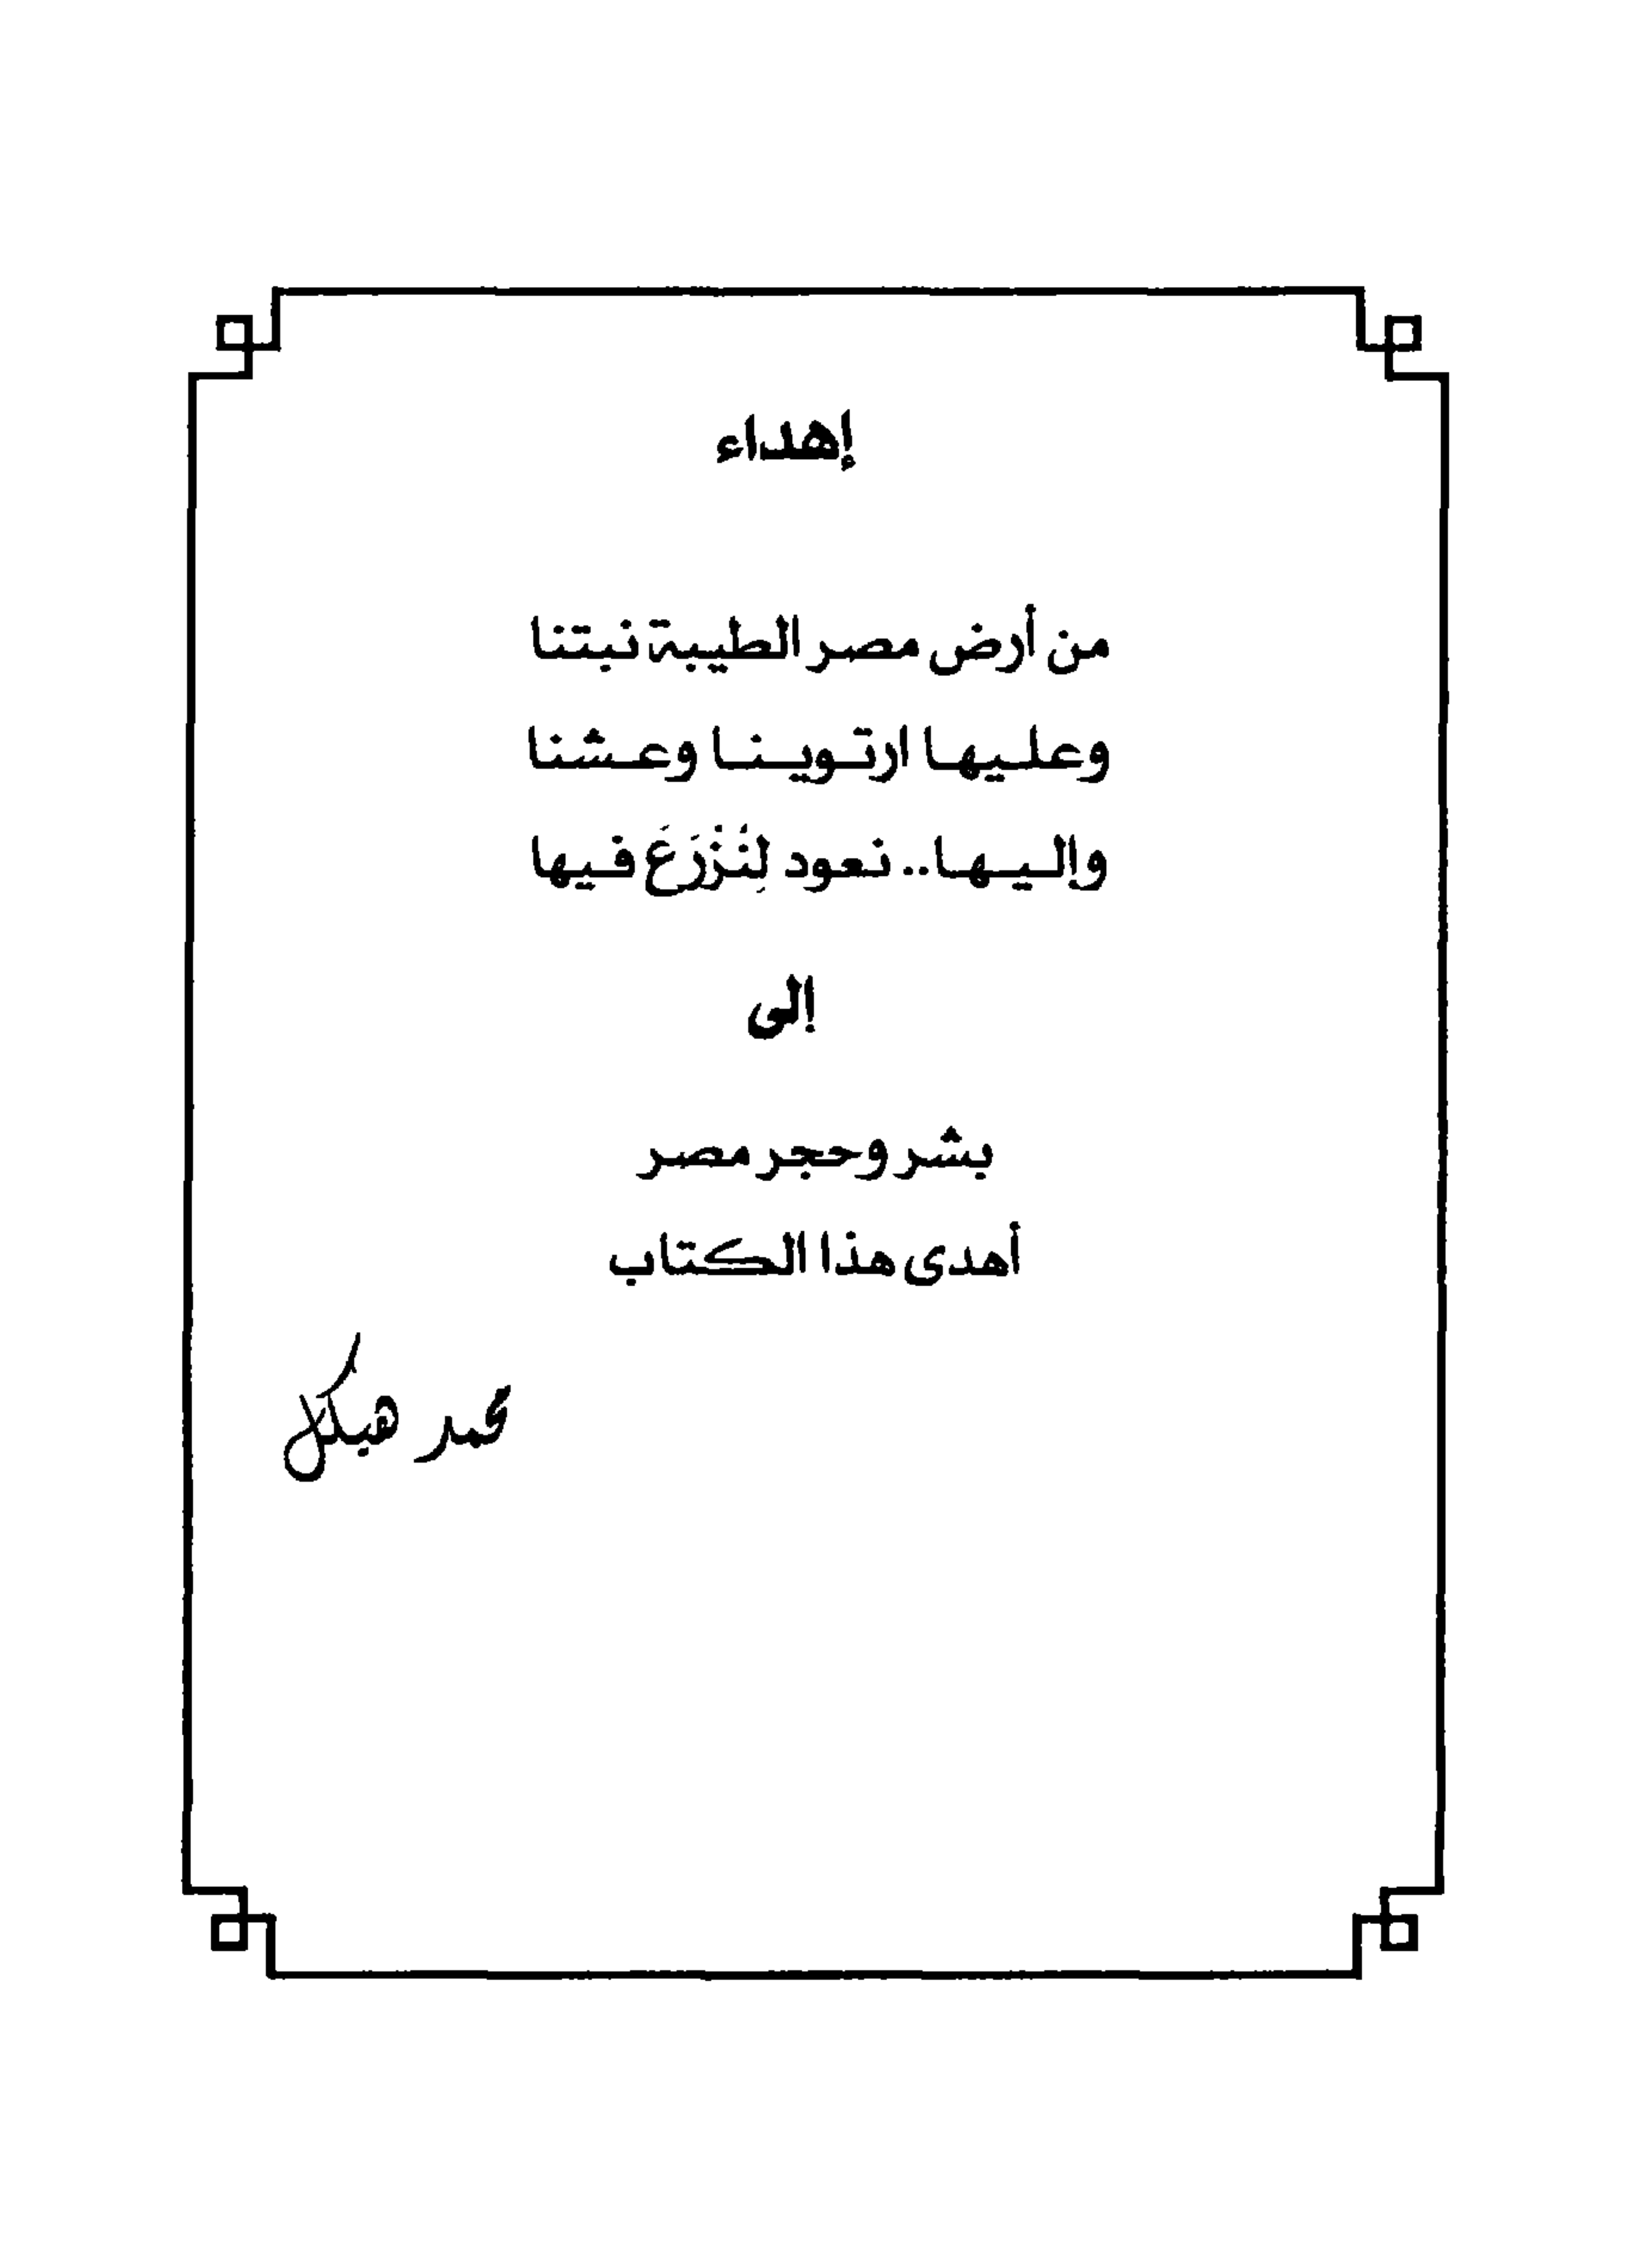 إهداء
من أرض مصر الطيبة نبتنا
وعليها ارتوينا وعشنا
وإليها.. نعود لِنُزْرَعَ فيها
إلى
بشر وحجر مصر
أهدى هذا الكتاب
محمد هيكل